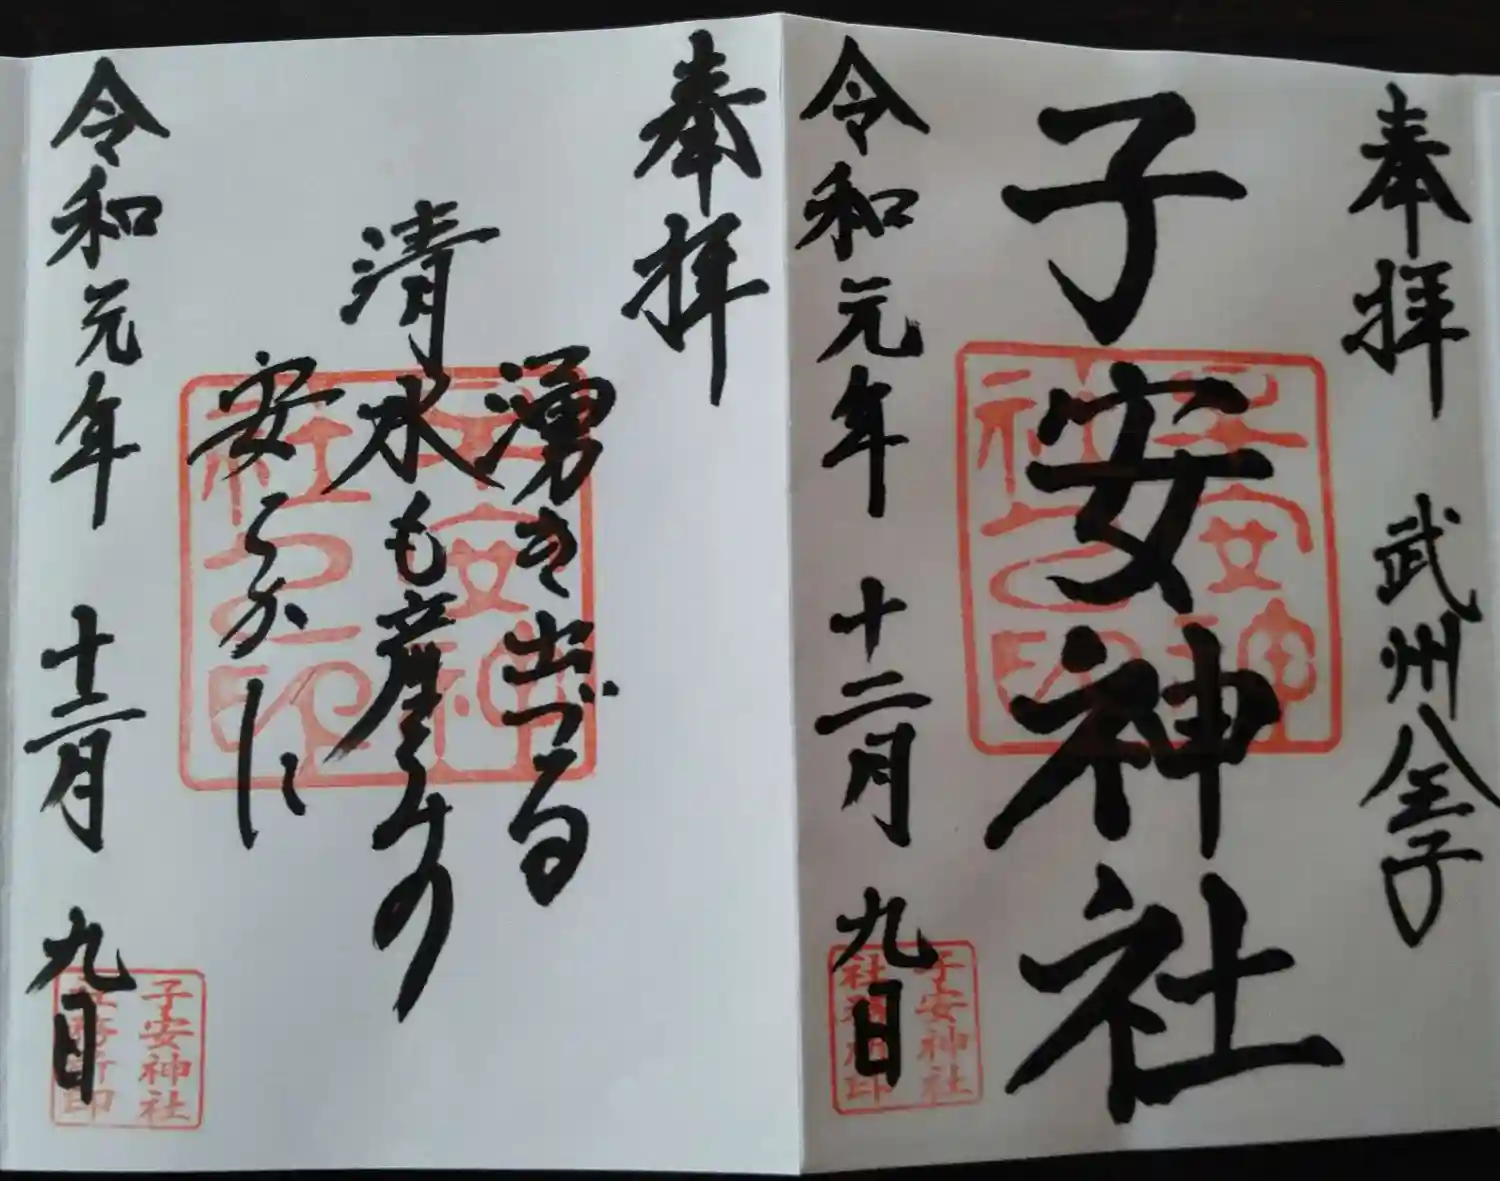 奉拝 武州八王子
子安神社
子安神社之印
令和元年 十二月 九日
子安神社
社務所印
奉拝
湧き出づる
清水も産みの
安らかに
子安神社之印
令和元年 十二月 九日
子安神社
社務所印